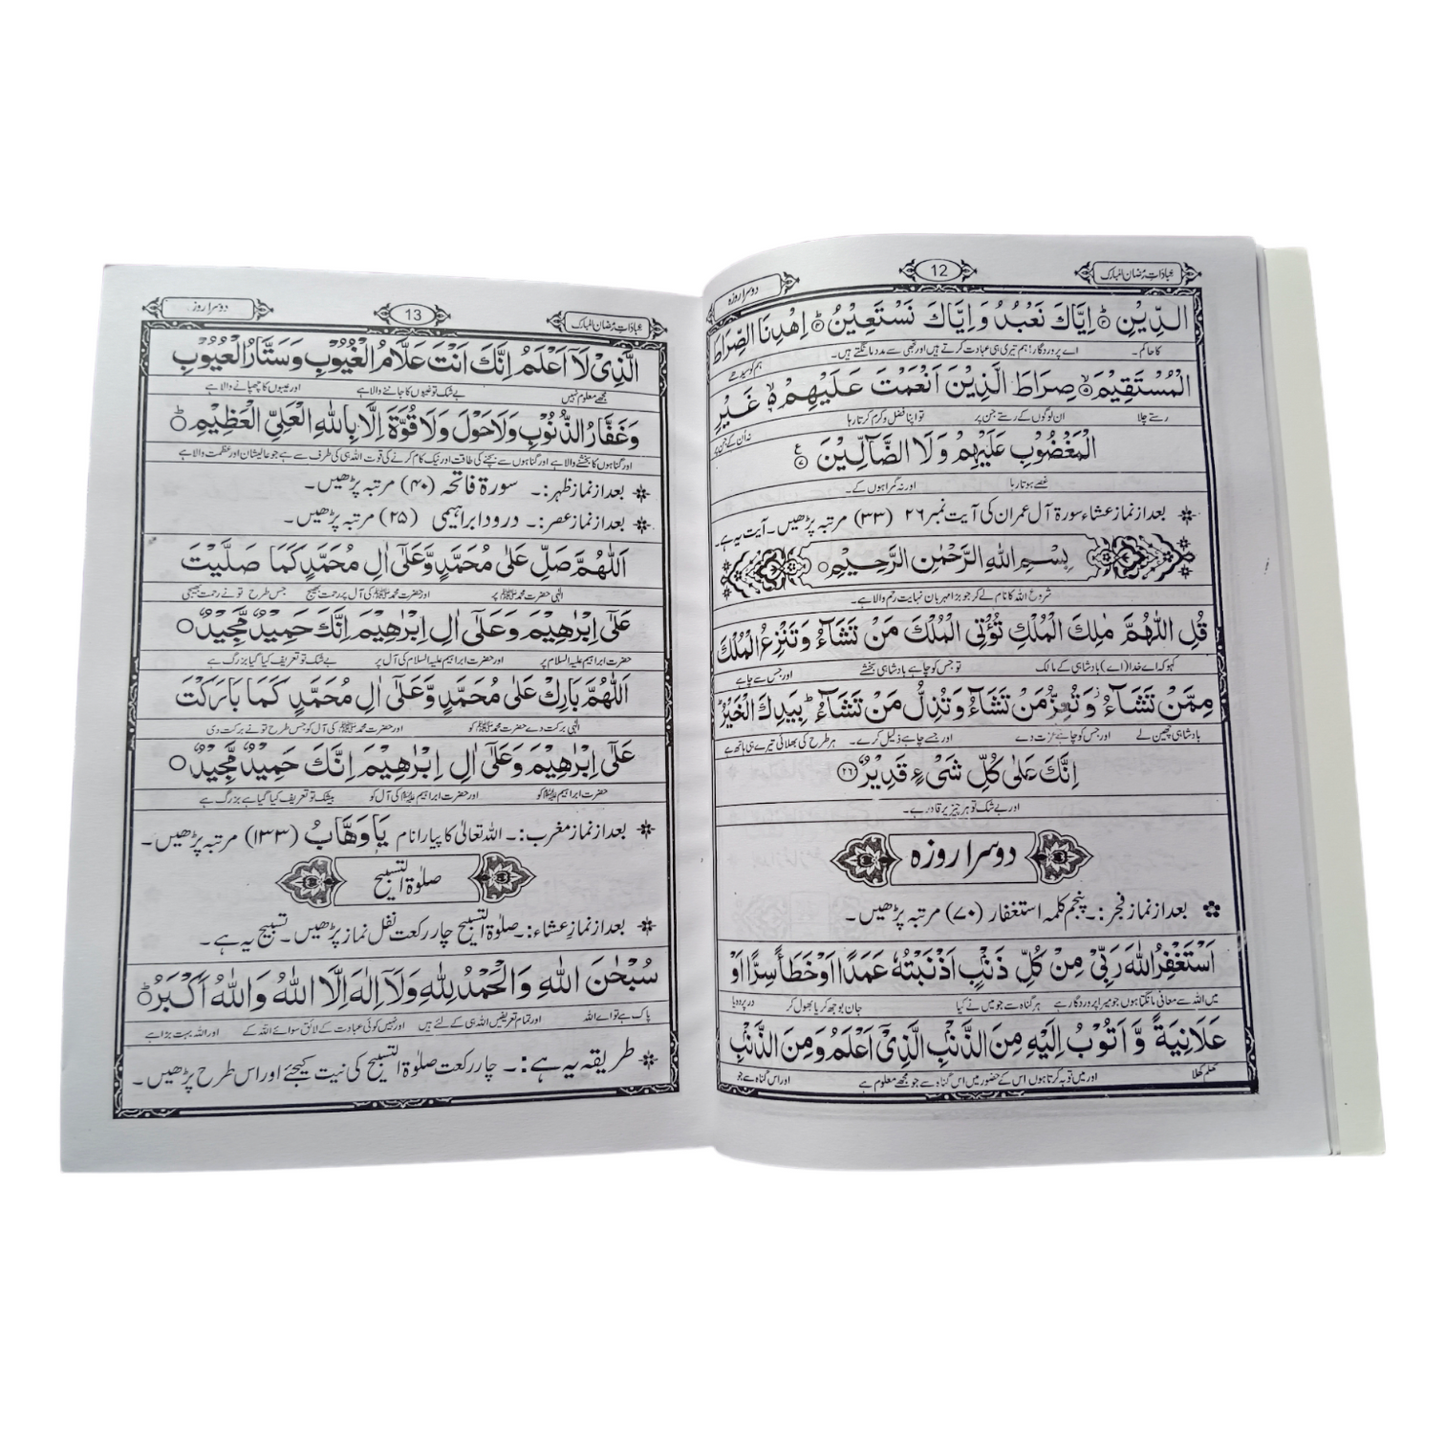 عبادات رمضان المبارک
12
دوسرا روزہ
الدِّيْنِ ؕ اِيَّاكَ نَعْبُدُ وَ اِيَّاكَ نَسْتَعِيْنُ ؕ اِهْدِنَا الصِّرَاطَ
کا حاکم۔ اے پروردگار! ہم تیری ہی عبادت کرتے ہیں اور تجھی سے مدد مانگتے ہیں۔ ہم کو سیدھے
الْمُسْتَقِيْمَ ۙ صِرَاطَ الَّذِيْنَ اَنْعَمْتَ عَلَيْهِمْ ۙ غَيْرِ
رستے چلا ان لوگوں کے رستے جن پر تو اپنا فضل و کرم کرتا رہا نہ اُن کے جن پر
الْمَغْضُوْبِ عَلَيْهِمْ وَلَا الضَّآلِّيْنَ
غصے ہوتا رہا اور نہ گمراہوں کے۔
بعد از نماز عشاء سورۃ آل عمران کی آیت نمبر ۲۶ (۳۳) مرتبہ پڑھیں۔ آیت یہ ہے۔
بِسْمِ اللهِ الرَّحْمٰنِ الرَّحِيْمِ
شروع اللہ کا نام لے کر جو بڑا مہربان نہایت رحم والا ہے۔
قُلِ اللّٰهُمَّ مٰلِكَ الْمُلْكِ تُؤْتِي الْمُلْكَ مَنْ تَشَآءُ وَتَنْزِعُ الْمُلْكَ
کہو کہ اے خدا (اے) بادشاہی کے مالک تو جس کو چاہے بادشاہی بخشے اور جس سے چاہے
مِمَّنْ تَشَآءُ وَتُعِزُّ مَنْ تَشَآءُ وَتُذِلُّ مَنْ تَشَآءُ ؕ بِيَدِكَ الْخَيْرُ ؕ
بادشاہی چھین لے اور جس کو چاہے عزت دے اور جسے چاہے ذلیل کرے۔ ہر طرح کی بھلائی تیرے ہی ہاتھ ہے
اِنَّكَ عَلٰى كُلِّ شَیْءٍ قَدِيْرٌ ۲۶
اور بے شک تو ہر چیز پر قادر ہے۔
دوسرا روزہ
بعد از نماز فجر:۔ پنجم کلمہ استغفار (۷۰) مرتبہ پڑھیں۔
اَسْتَغْفِرُ اللهَ رَبِّيْ مِنْ كُلِّ ذَنْۢبٍ اَذْنَبْتُهٗ عَمَدًا اَوْ خَطَأً سِرًّا اَوْ
میں اللہ سے معافی مانگتا ہوں جو میرا پروردگار ہے ہر گناہ سے جو میں نے کیا جان بوجھ کر یا بھول کر در پردہ یا
عَلَانِيَةً وَّ اَتُوْبُ اِلَيْهِ مِنَ الذَّنْۢبِ الَّذِيْٓ اَعْلَمُ وَ مِنَ الذَّنْۢبِ
کھلم کھلا اور میں توبہ کرتا ہوں اس کے حضور میں اس گناہ سے جو مجھے معلوم ہے اور اس گناہ سے جو
عبادات رمضان المبارک
13
دوسرا روزہ
الَّذِيْ لَآ اَعْلَمُ اِنَّكَ اَنْتَ عَلَّامُ الْغُيُوْبِ وَ سَتَّارُ الْعُيُوْبِ
مجھے معلوم نہیں بے شک تو غیبوں کا جاننے والا ہے اور عیبوں کا چھپانے والا ہے
وَ غَفَّارُ الذُّنُوْبِ وَلَا حَوْلَ وَلَا قُوَّةَ اِلَّا بِاللهِ الْعَلِيِّ الْعَظِيْمِ ؕ
اور گناہوں کا بخشنے والا ہے اور گناہوں سے بچنے کی طاقت اور نیک کام کرنے کی قوت اللہ ہی کی طرف سے ہے جو عالیشان اور عظمت والا ہے
بعد از نماز ظہر:۔ سورۃ فاتحہ (۴۰) مرتبہ پڑھیں۔
بعد از نماز عصر:۔ درود ابراہیمی (۲۵) مرتبہ پڑھیں۔
اَللّٰهُمَّ صَلِّ عَلٰى مُحَمَّدٍ وَّعَلٰٓى اٰلِ مُحَمَّدٍ كَمَا صَلَّيْتَ
الٰہی حضرت محمد ﷺ پر اور حضرت محمد ﷺ کی آل پر رحمت بھیج جس طرح تو نے رحمت بھیجی
عَلٰٓى اِبْرٰهِيْمَ وَ عَلٰٓى اٰلِ اِبْرٰهِيْمَ اِنَّكَ حَمِيْدٌ مَّجِيْدٌ
حضرت ابراہیم علیہ السلام پر اور حضرت ابراہیم علیہ السلام کی آل پر بے شک تو تعریف کیا گیا بزرگ ہے
اَللّٰهُمَّ بَارِكْ عَلٰى مُحَمَّدٍ وَّعَلٰٓى اٰلِ مُحَمَّدٍ كَمَا بَارَكْتَ
الٰہی برکت دے حضرت محمد ﷺ کو اور حضرت محمد ﷺ کی آل کو جس طرح تو نے برکت دی
عَلٰٓى اِبْرٰهِيْمَ وَعَلٰٓى اٰلِ اِبْرٰهِيْمَ اِنَّكَ حَمِيْدٌ مَّجِيْدٌ
حضرت ابراہیم ؑ کو اور حضرت ابراہیم ؑ کی آل کو بیشک تو تعریف کیا گیا ہے بزرگ ہے
بعد از نماز مغرب:۔ اللہ تعالیٰ کا پیارا نام يَا وَهَّابُ (۱۳۳) مرتبہ پڑھیں۔
صلوٰۃ التسبیح
بعد از نماز عشاء:۔ صلوٰۃ التسبیح چار رکعت نفل نماز پڑھیں۔ تسبیح یہ ہے۔
سُبْحٰنَ اللهِ وَالْحَمْدُ لِلّٰهِ وَلَآ اِلٰهَ اِلَّا اللهُ وَاللهُ اَكْبَرُ ؕ
پاک ہے تو اے اللہ اور تمام تعریفیں اللہ ہی کے لئے ہیں اور نہیں کوئی عبادت کے لائق سوائے اللہ کے اور اللہ بہت بڑا ہے
طریقہ یہ ہے:۔ چار رکعت صلوٰۃ التسبیح کی نیت کیجئے اور اس طرح پڑھیں۔